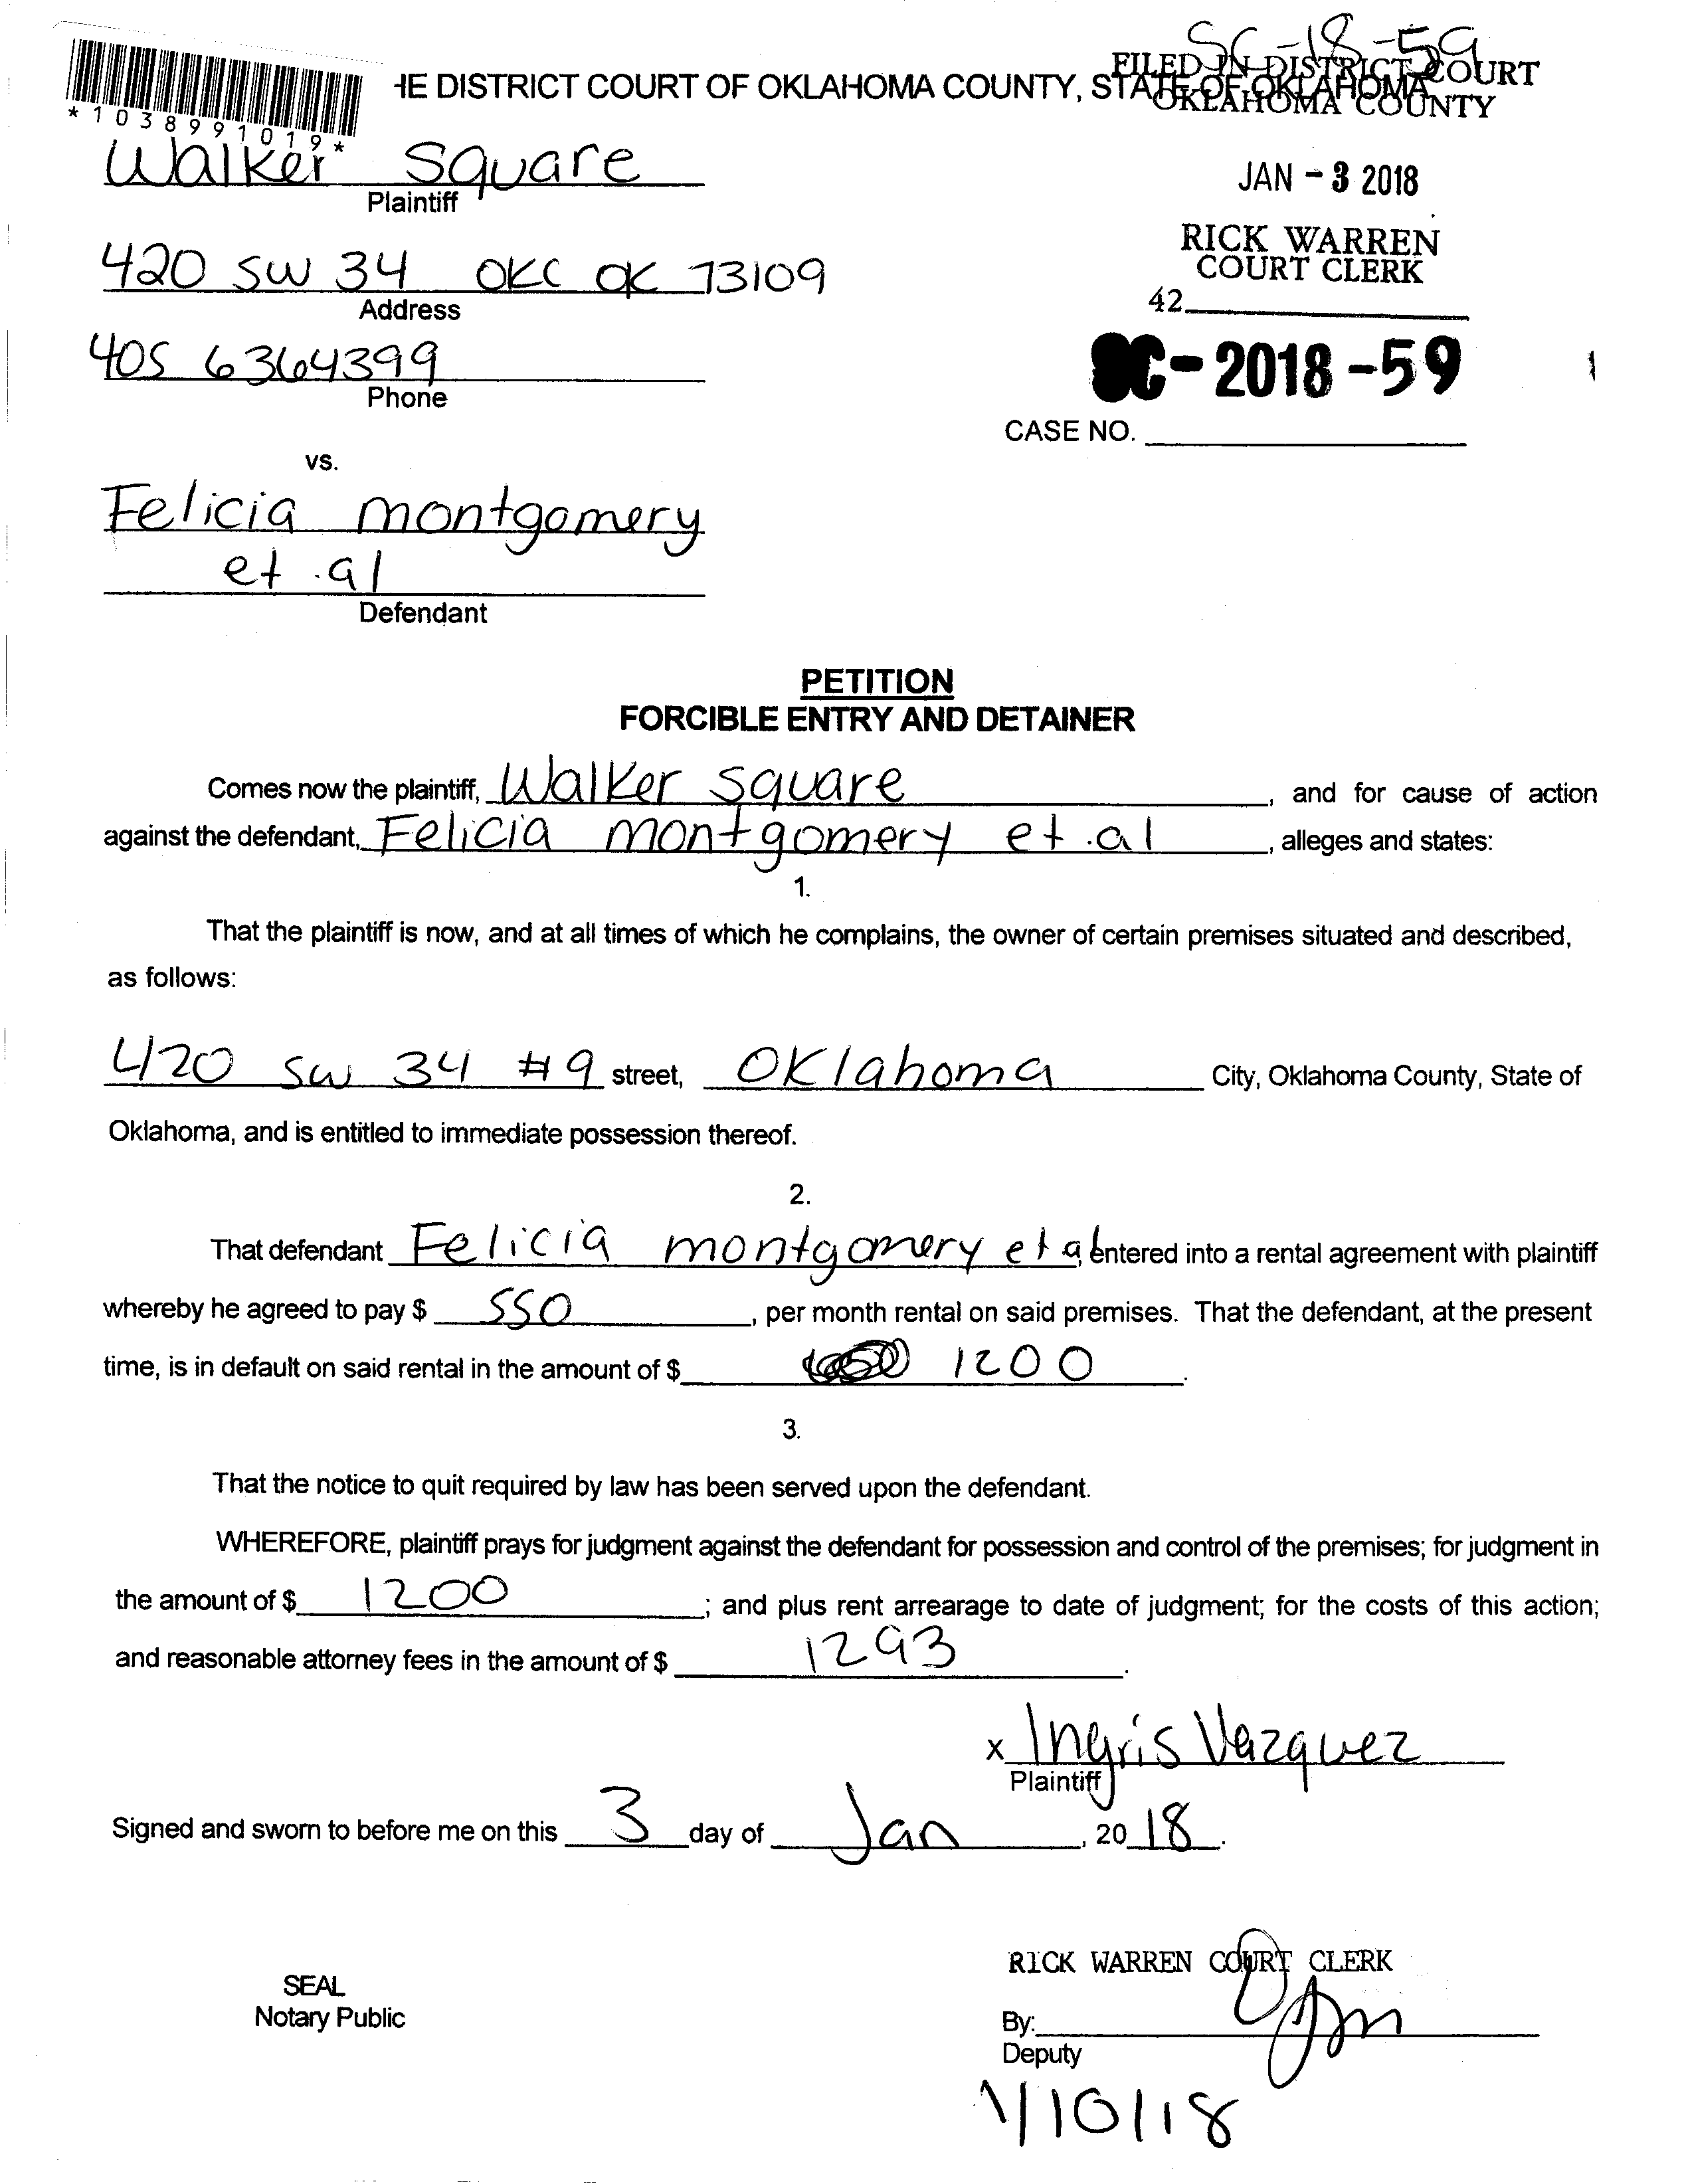 SC-18-59
FILED IN DISTRICT COURT
OKLAHOMA COUNTY
HE DISTRICT COURT OF OKLAHOMA COUNTY, STATE OF OKLAHOMA
*1038991019*
Walker Square
Plaintiff
JAN - 3 2018
420 SW 34 OKC OK 73109
Address
RICK WARREN
COURT CLERK
42
405 6364399
Phone
SC-2018-59
CASE NO.
vs.
Felicia montgomery
et.al
Defendant
PETITION
FORCIBLE ENTRY AND DETAINER
Comes now the plaintiff, Walker square, and for cause of action
against the defendant, Felicia montgomery et.al, alleges and states:
1.
That the plaintiff is now, and at all times of which he complains, the owner of certain premises situated and described,
as follows:
420 SW 34 #9 street, Oklahoma City, Oklahoma County, State of
Oklahoma, and is entitled to immediate possession thereof.
2.
That defendant Felicia montgomery et al, entered into a rental agreement with plaintiff
whereby he agreed to pay $ 550, per month rental on said premises. That the defendant, at the present
time, is in default on said rental in the amount of $ 1200.
3.
That the notice to quit required by law has been served upon the defendant.
WHEREFORE, plaintiff prays for judgment against the defendant for possession and control of the premises; for judgment in
the amount of $ 1200; and plus rent arrearage to date of judgment; for the costs of this action;
and reasonable attorney fees in the amount of $ 1293.
x Ingris Vazquez
Plaintiff
Signed and sworn to before me on this 3 day of Jan, 2018.
RICK WARREN COURT CLERK
SEAL
Notary Public
By:
Deputy
1/10/18